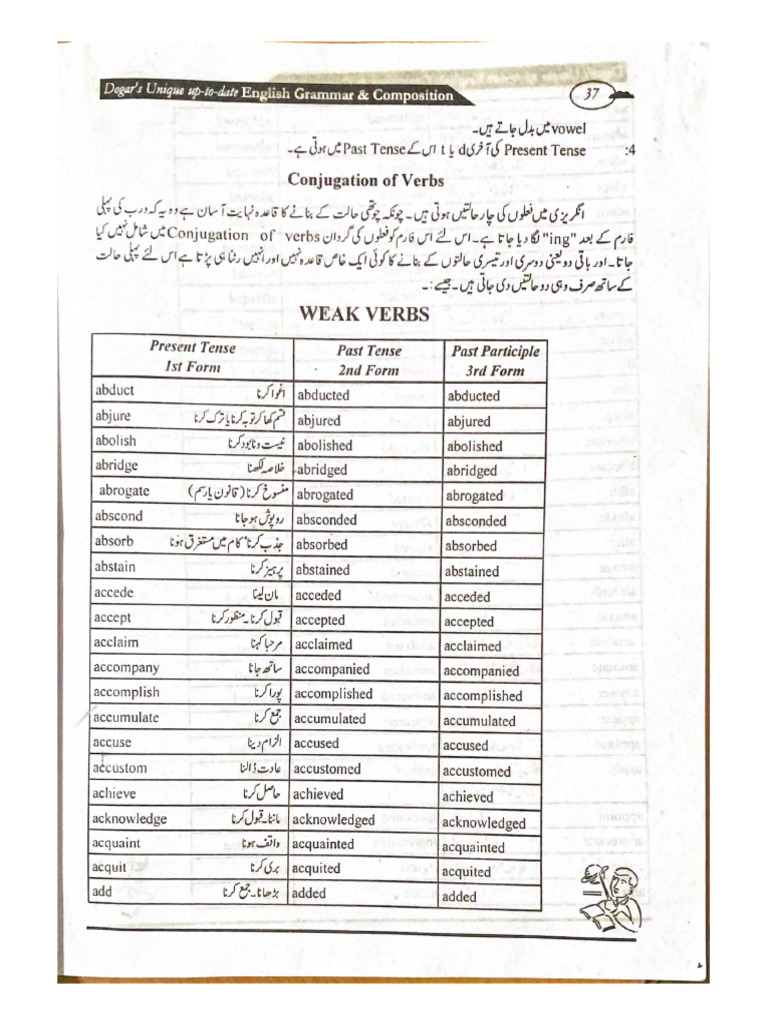 Dogar's Unique up-to-date English Grammar & Composition 37
vowel میں بدل جاتے ہیں۔
4: Present Tense کی آخری d یا t اس کے Past Tense میں ہوتی ہے۔
Conjugation of Verbs
انگریزی میں فعلوں کی چار حالتیں ہوتی ہیں۔ چونکہ چوتھی حالت کے بنانے کا قاعدہ نہایت آسان ہے وہ یہ کہ ورب کی پہلی
فارم کے بعد "ing" لگا دیا جاتا ہے۔ اس لئے اس فارم کو فعلوں کی گردان Conjugation of verbs میں شامل نہیں کیا
جاتا۔ اور باقی دو یعنی دوسری اور تیسری حالتوں کے بنانے کا کوئی ایک خاص قاعدہ نہیں اور انہیں رٹنا ہی پڑتا ہے اس لئے پہلی حالت
کے ساتھ صرف وہی دو حالتیں دی جاتی ہیں۔ جیسے:۔
WEAK VERBS
Present Tense Past Tense Past Participle
1st Form 2nd Form 3rd Form
abduct اغوا کرنا abducted abducted
abjure قسم کھا کر توبہ کرنا یا ترک کرنا abjured abjured
abolish نیست و نابود کرنا abolished abolished
abridge خلاصہ لکھنا abridged abridged
abrogate منسوخ کرنا (قانون یا رسم) abrogated abrogated
abscond روپوش ہو جانا absconded absconded
absorb جذب کرنا' کام میں مستغرق ہونا absorbed absorbed
abstain پرہیز کرنا abstained abstained
accede مان لینا acceded acceded
accept قبول کرنا۔ منظور کرنا accepted accepted
acclaim مرحبا کہنا acclaimed acclaimed
accompany ساتھ جانا accompanied accompanied
accomplish پورا کرنا accomplished accomplished
accumulate جمع کرنا accumulated accumulated
accuse الزام دینا accused accused
accustom عادت ڈالنا accustomed accustomed
achieve حاصل کرنا achieved achieved
acknowledge ماننا۔ قبول کرنا acknowledged acknowledged
acquaint واقف ہونا acquainted acquainted
acquit بری کرنا acquited acquited
add بڑھانا۔ جمع کرنا added added